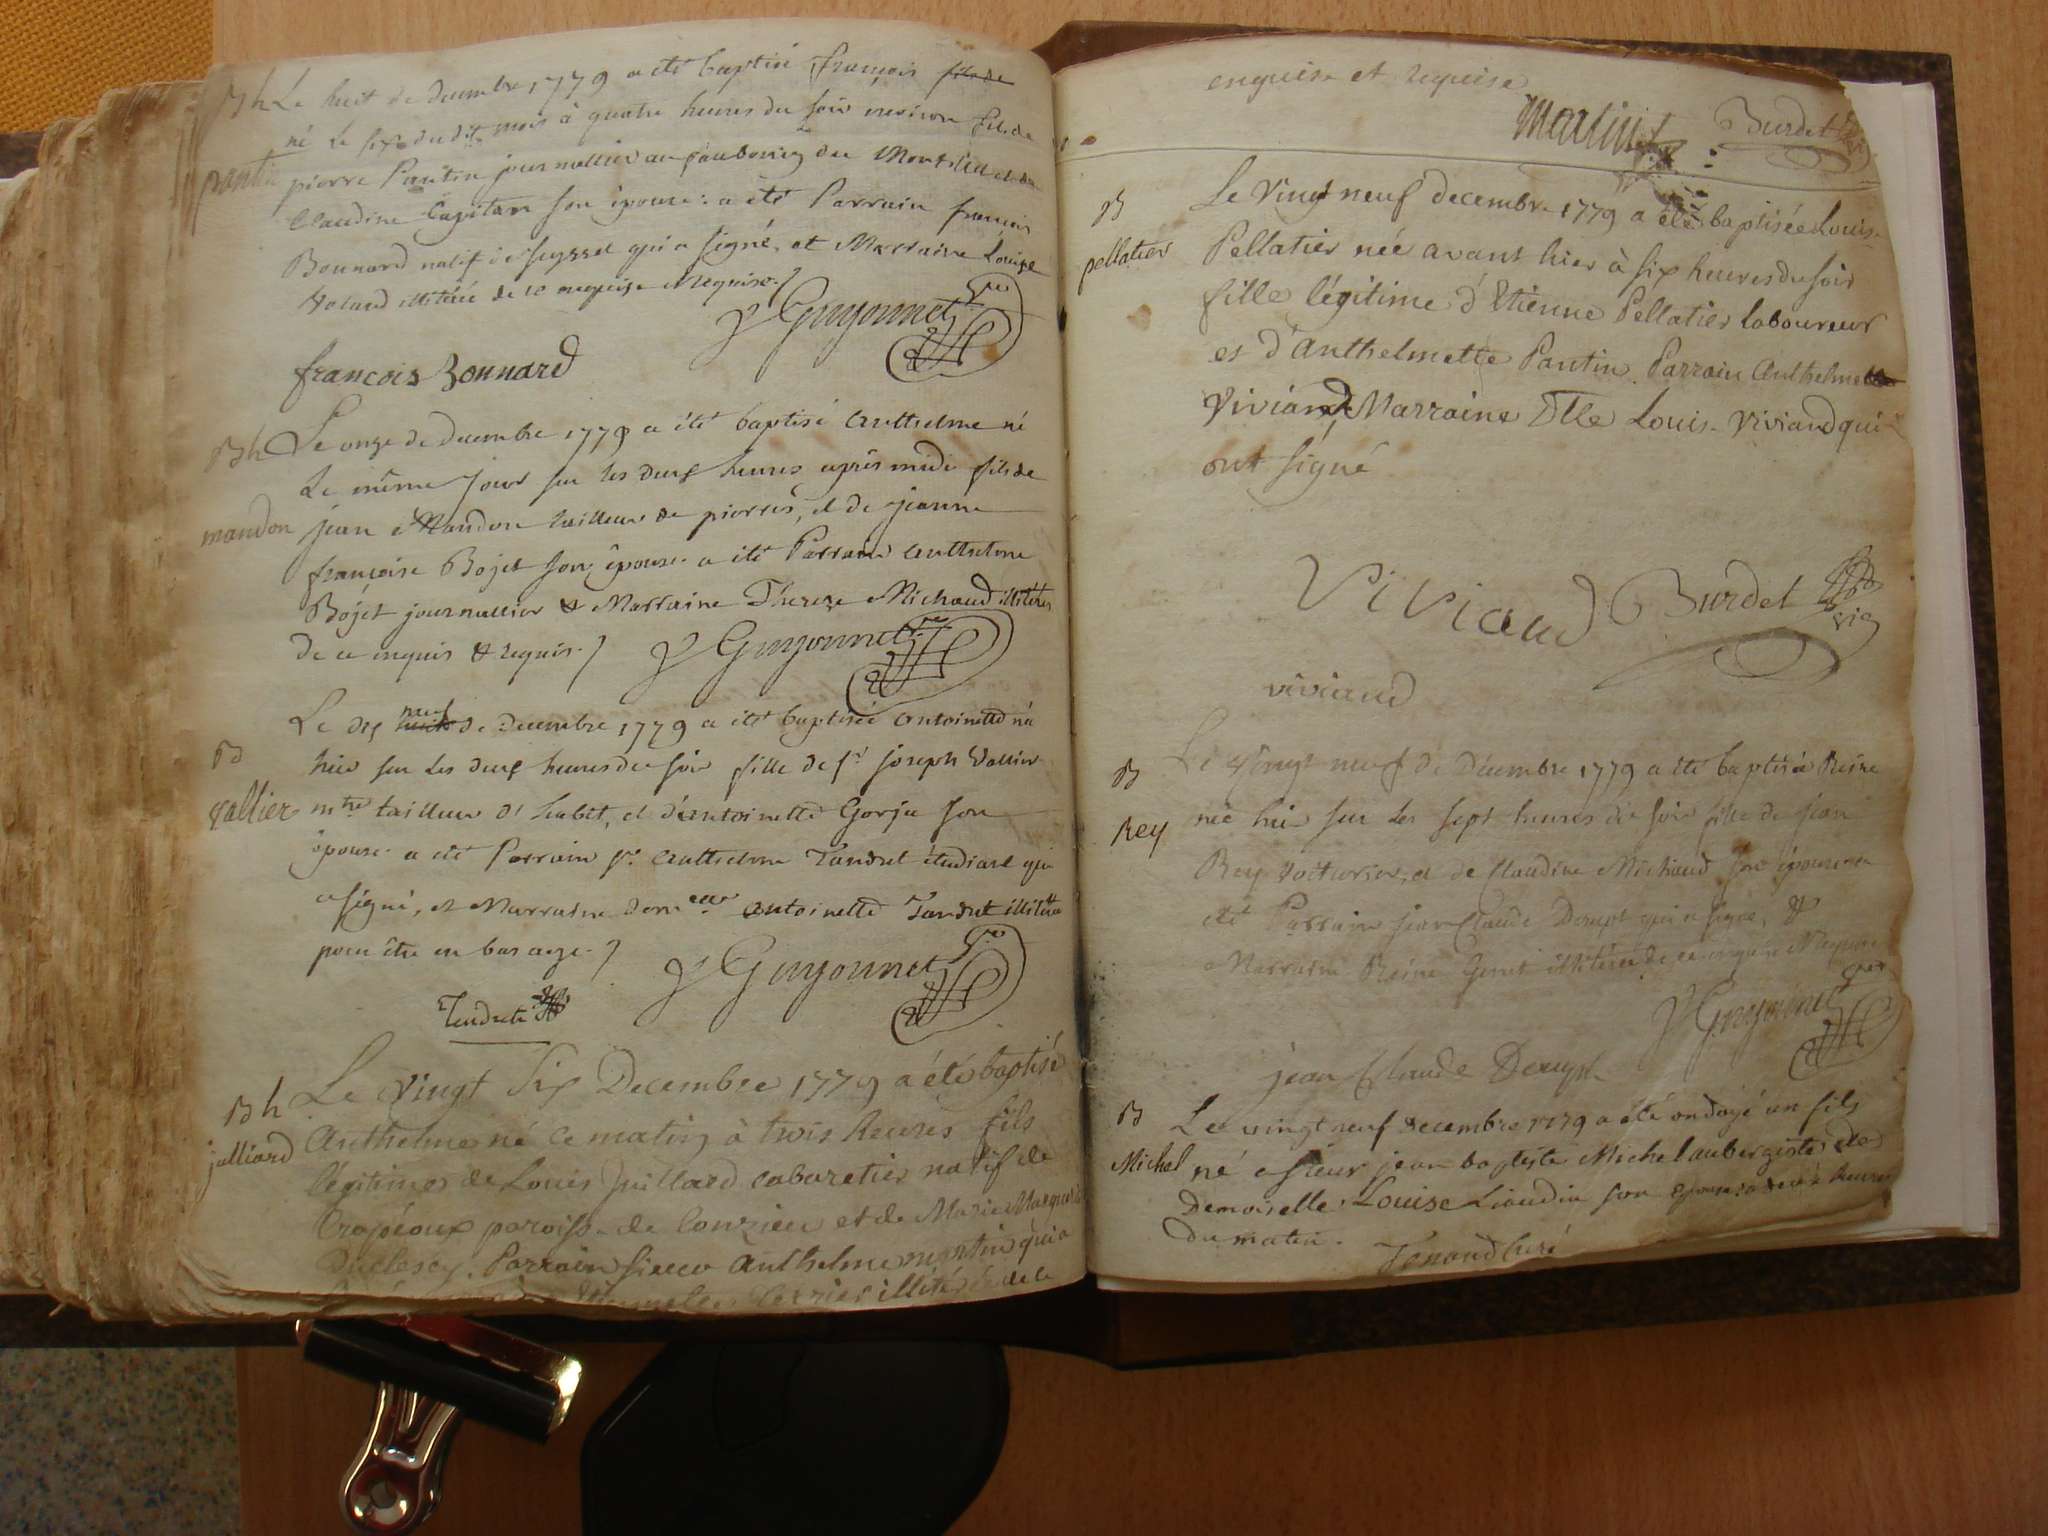 Bh Le huit de decembre 1779 a été baptisé françois fils de
né le six du dit mois à quatre heures du soir environ fils de
pantin pierre Pantin journallier au faubourg du et de
Claudine Capitan son épouse : a été Parrain francois
Bonnard natif de Seyssel qui a signé, et Marraine Louise
Voland illitérée de ce enquise & requise.
Guyonnet
francois Bonnard
Bh Le onze de decembre 1779 a été baptisé Anthelme né
Le même jour sur les deux heures après midi fils de
mandon jean Mandon tailleur de pierres, et de jeanne
françoise Bojet son épouse. a été Parrain Anthelme
Bojet journallier & Marraine Thereze Michaud illitérés
de ce enquis & requis.
Guyonnet
Le dix neuf de decembre 1779 a été baptisée Antoinette née
B hier sur les deux heures du soir fille de sr joseph Vallier
vallier mtre tailleur d'habit, et d'antoinette Gorju son
épouse. a été Parrain sr. Anthelme Tendret étudiant qui
a signé, et Marraine demelle antoinette Tendret illitérée
pour être en bas age.
Guyonnet
Tendret
Bh Le vingt six Decembre 1779 a été baptisé
julliard Anthelme né ce matin à trois heures fils
légitime de Louis Juillard cabaretier natif de
Crapéoux paroisse de Conzieu et de Marie
Duclos Parrain sieur Anthelme martin qui a
illitérée de ce
enquise et requise
Martin Burdet vic
B Le Vingt neuf decembre 1779 a été baptisée Louise
pellatier Pellatier née avant hier à six heures du soir
fille légitime d'Etienne Pellatier laboureur
et d'anthelmette Pantin. Parrain Anthelme
Viviand Marraine Dlle Louise Viviand qui
ont signé
Viviand Burdet vic
viviand
Le Vingt neuf de Décembre 1779 a été baptisée Reine
B née hier sur les sept heures du soir fille de jean
Rey Rey voiturier, et de Claudine Michaud son épouse. a
été Parrain jean Claude qui a signé, &
Marraine Reine Genet illitérée de ce enquise & requise
Guyonnet
jean Claude
B Le vingt neuf decembre 1779 a été ondoyé un fils
Michel né a sieur jean baptiste Michel aubergiste et de
Demoiselle Louise Liaudin son epouse a heures
du matin.
Tenand Curé